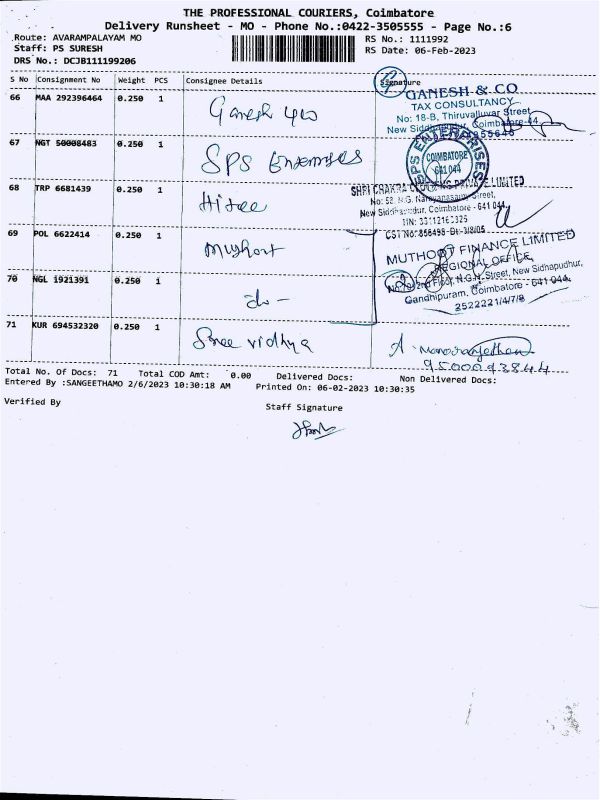 THE PROFESSIONAL COURIERS, Coimbatore
Delivery Runsheet - MO - Phone No.:0422-3505555 - Page No.:6
Route: AVARAMPALAYAM MO
Staff: PS SURESH
DRS No.: DCJB111199206
RS No.: 1111992
RS Date: 06-Feb-2023
S No Consignment No Weight PCS Consignee Details Signature
66 MAA 292396464 0.250 1 Ganesh
GANESH & CO
TAX CONSULTANCY
No: 18-B, Thiruvalluvar Street,
67 NGT 50008483 0.250 1 SPS
SPS ENTERPRISES
COIMBATORE
641 044
68 TRP 6681439 0.250 1
LIMITED
Coimbatore - 641 044
69 POL 6622414 0.250 1
MUTHOOT FINANCE LIMITED
REGIONAL OFFICE,
2nd Floor, N.G.N. Street, New Sidhapudhur,
Gandhipuram, Coimbatore - 641 044.
2522221/4/7/8
70 NGL 1921391 0.250 1 do -
71 KUR 694532320 0.250 1 Sree vidhya
Total No. Of Docs: 71 Total COD Amt: 0.00 Delivered Docs: Non Delivered Docs:
Entered By :SANGEETHAMO 2/6/2023 10:30:18 AM Printed On: 06-02-2023 10:30:35
Verified By
Staff Signature